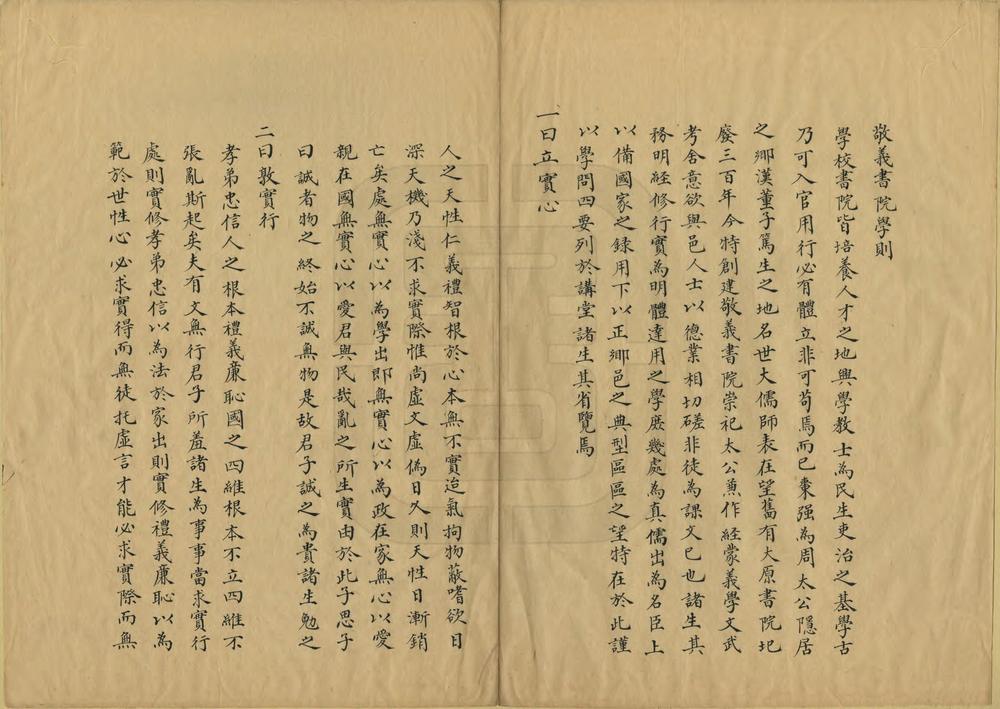 敬義書院學則
學校書院皆培養人才之地興學教士為民生吏治之基學古
乃可入官用行必有體立非可苟焉而已棗强為周太公隱居
之鄉漢董子篤生之地名世大儒師表在望舊有大原書院圮
廢三百年今特創建敬義書院崇祀太公兼作經蒙義學文武
考舍意欲與邑人士以德業相切磋非徒為課文已也諸生其
務明經修行實為明體達用之學庶幾處為真儒出為名臣上
以備國家之錄用下以正鄉邑之典型區區之望特在於此謹
以學問四要列於講堂諸生其省覽焉
一曰立實心
人之天性仁義禮智根於心本無不實迨氣拘物蔽嗜欲日
深天機乃淺不求實際惟尚虛文虛偽日久則天性日漸銷
亡矣處無實心以為學出即無實心以為政在家無心以愛
親在國無實心以愛君與民哉亂之所生實由於此子思子
曰誠者物之終始不誠無物是故君子誠之為貴諸生勉之
二曰敦實行
孝弟忠信人之根本禮義廉恥國之四維根本不立四維不
張亂斯起矣夫有文無行君子所羞諸生為事事當求實行
處則實修孝弟忠信以為法於家出則實修禮義廉恥以為
範於世性心必求實得而無徒托虛言才能必求實際而無